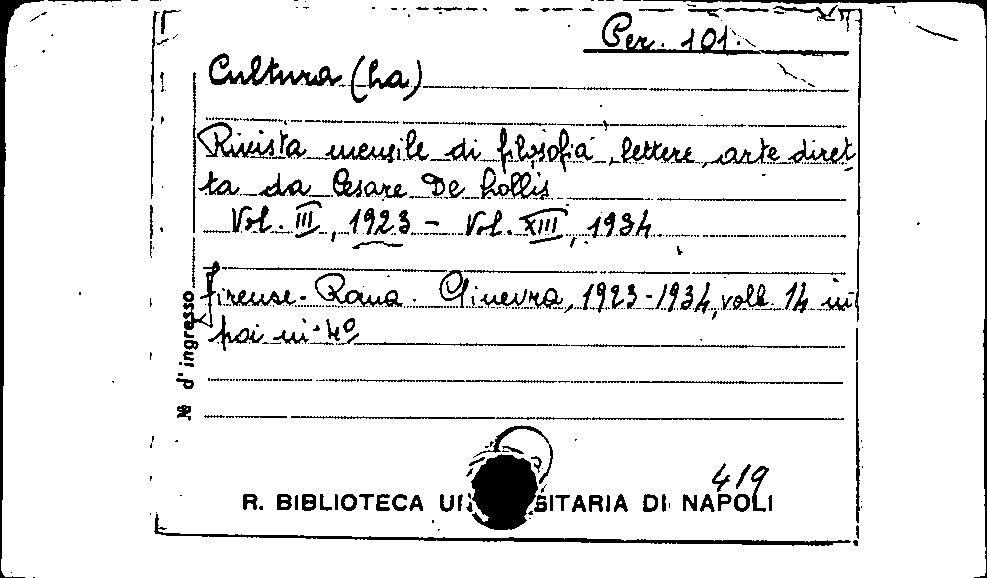 Per. 101.
Cultura (La)
Rivista mensile di filosofia, lettere, arte diret
ta da Cesare De Lollis
Vol. III, 1923 - Vol. XIII, 1934.
Firenze - Roma. Ginevra, 1923-1934, voll. 14 in
poi in-4º
№ d'ingresso
419
R. BIBLIOTECA UNIVERSITARIA DI NAPOLI